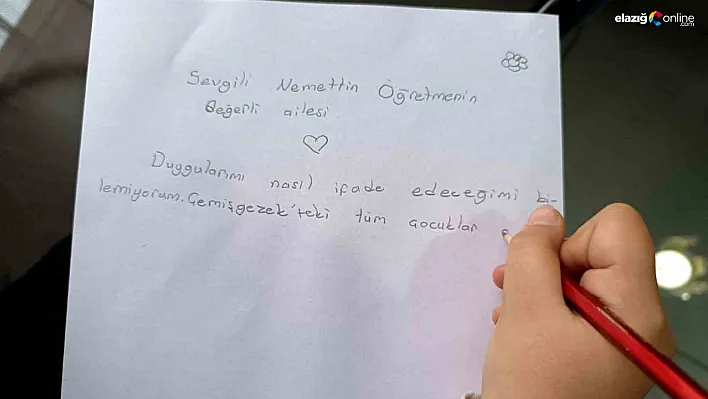 elazığ online
.com
Sevgili Nemettin Öğretmenin
Değerli ailesi
Duygularımı nasıl ifade edeceğimi bi-
lemiyorum. Çemişgezek'teki tüm çocuklar